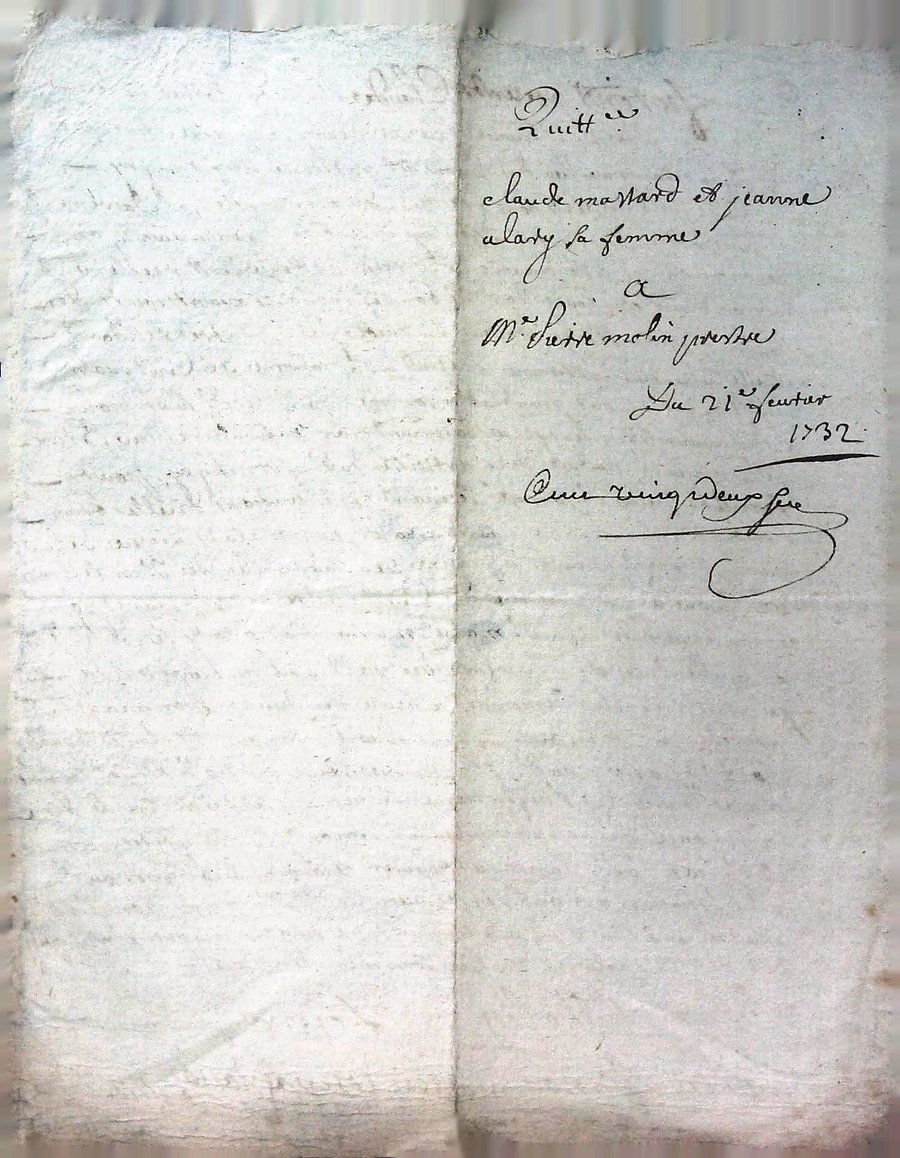 Quitt ce
claude mastard et jeanne
alary sa femme
a
Me. Pierre molin prestre
Du 21e feurier
1732
vingtdeux